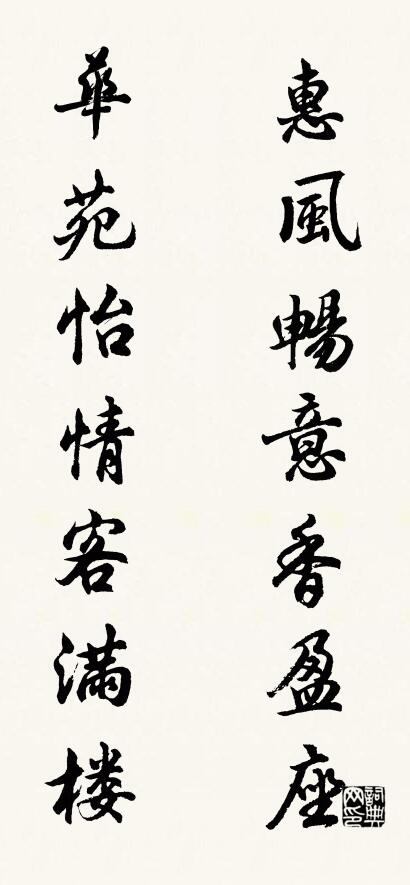 惠風暢意香盈座
華苑怡情客满楼
詞典网印